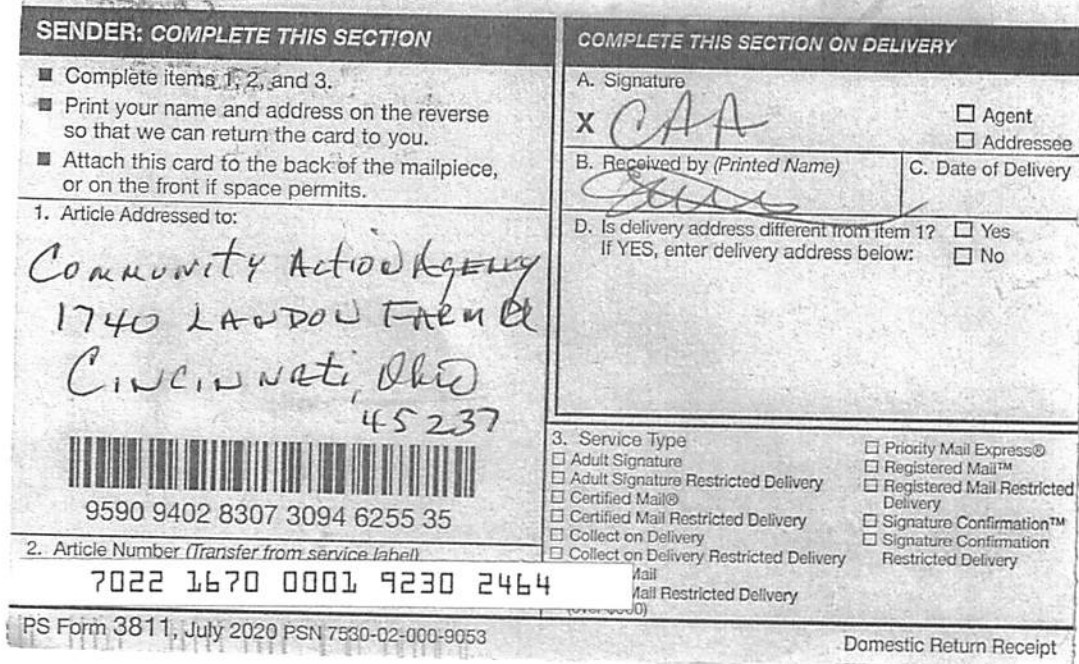 SENDER: COMPLETE THIS SECTION
■ Complete items 1, 2, and 3.
■ Print your name and address on the reverse
so that we can return the card to you.
■ Attach this card to the back of the mailpiece,
or on the front if space permits.
1. Article Addressed to:
Community Action Agency
1740 LANDON FARM
Cincinnati, Ohio
45237
9590 9402 8307 3094 6255 35
2. Article Number (Transfer from service label)
7022 1670 0001 9230 2464
PS Form 3811, July 2020 PSN 7530-02-000-9053
COMPLETE THIS SECTION ON DELIVERY
A. Signature
X CAA
☐ Agent
☐ Addressee
B. Received by (Printed Name)
C. Date of Delivery
D. Is delivery address different from item 1? ☐ Yes
If YES, enter delivery address below: ☐ No
3. Service Type
☐ Adult Signature
☐ Adult Signature Restricted Delivery
☐ Certified Mail®
☐ Certified Mail Restricted Delivery
☐ Collect on Delivery
☐ Collect on Delivery Restricted Delivery
Mail
Mail Restricted Delivery
☐ Priority Mail Express®
☐ Registered Mail™
☐ Registered Mail Restricted
Delivery
☐ Signature Confirmation™
☐ Signature Confirmation
Restricted Delivery
Domestic Return Receipt